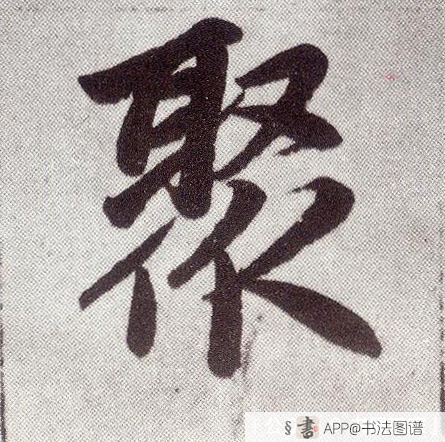 聚
§書 APP@书法图谱